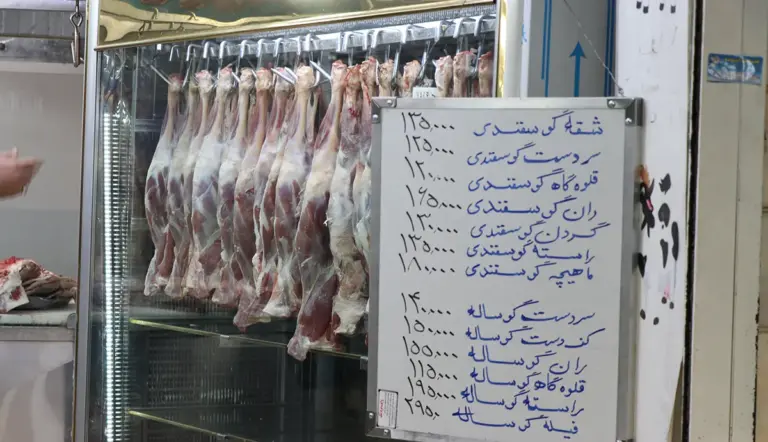 شقه گوسفندی ۱۳۵,۰۰۰
سردست گوسفندی ۱۲۵,۰۰۰
قلوه گاه گوسفندی ۱۲۰,۰۰۰
ران گوسفندی ۱۶۵,۰۰۰
گردن گوسفندی ۱۳۰,۰۰۰
راسته گوسفندی ۱۳۵,۰۰۰
ماهیچه گوسفندی ۱۸۰,۰۰۰
سردست گوساله ۱۴۰,۰۰۰
کندست گوساله ۱۵۰,۰۰۰
ران گوساله ۱۵۵,۰۰۰
قلوه گاه گوساله ۱۱۵,۰۰۰
راسته گوساله ۱۹۵,۰۰۰
فیله گوساله ۲۹۵,۰۰